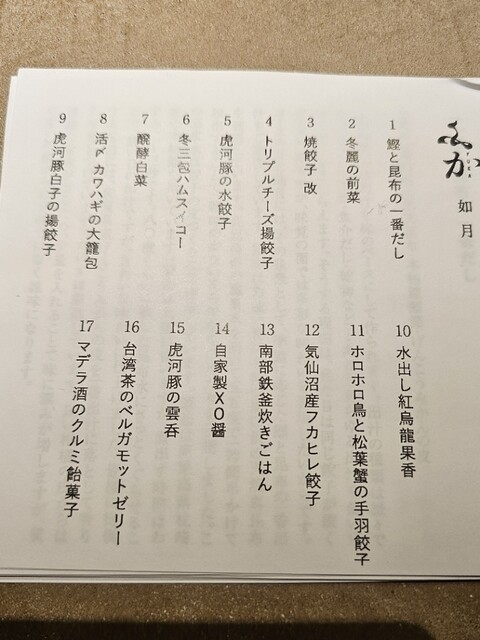 ふか
如月
1 鰹と昆布の一番だし
2 冬麗の前菜
3 焼餃子 改
4 トリプルチーズ揚餃子
5 虎河豚の水餃子
6 冬三包ハムスイコー
7 醗酵白菜
8 活〆カワハギの大籠包
9 虎河豚白子の揚餃子
10 水出し紅烏龍果香
11 ホロホロ鳥と松葉蟹の手羽餃子
12 気仙沼産フカヒレ餃子
13 南部鉄釜炊きごはん
14 自家製XO醤
15 虎河豚の雲呑
16 台湾茶のベルガモットゼリー
17 マデラ酒のクルミ飴菓子